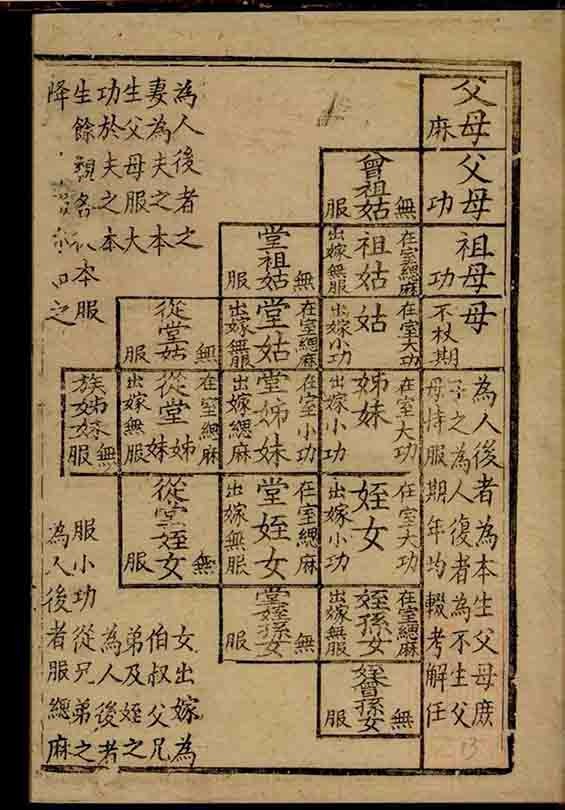 父母
麻
父母
功
祖母
功
母
不杖期
為人後者為本生父母庶
子之為人復者為不生父
母持服期年均輟考解任
曾祖姑
無服
在室緦麻
祖姑
出嫁無服
在室大功
姑
出嫁小功
在室大功
姊妹
出嫁小功
在室大功
姪女
出嫁小功
在室緦麻
姪孫女
出嫁無服
姪曾孫女
無服
堂祖姑
無服
在室緦麻
堂姑
出嫁無服
在室小功
堂姊妹
出嫁緦麻
在室緦麻
堂姪女
出嫁無服
堂姪孫女
無服
從堂姑
無服
在室緦麻
從堂姊妹
出嫁無服
從堂姪女
無服
族姊妹
無服
為人後者之
妻為夫之本
生父母服大
功於夫之本
生餘親各 本服
降 之
女出嫁為
伯叔父兄
弟及姪之
為人後者
服小功從兄弟之
為人後者服緦麻
13